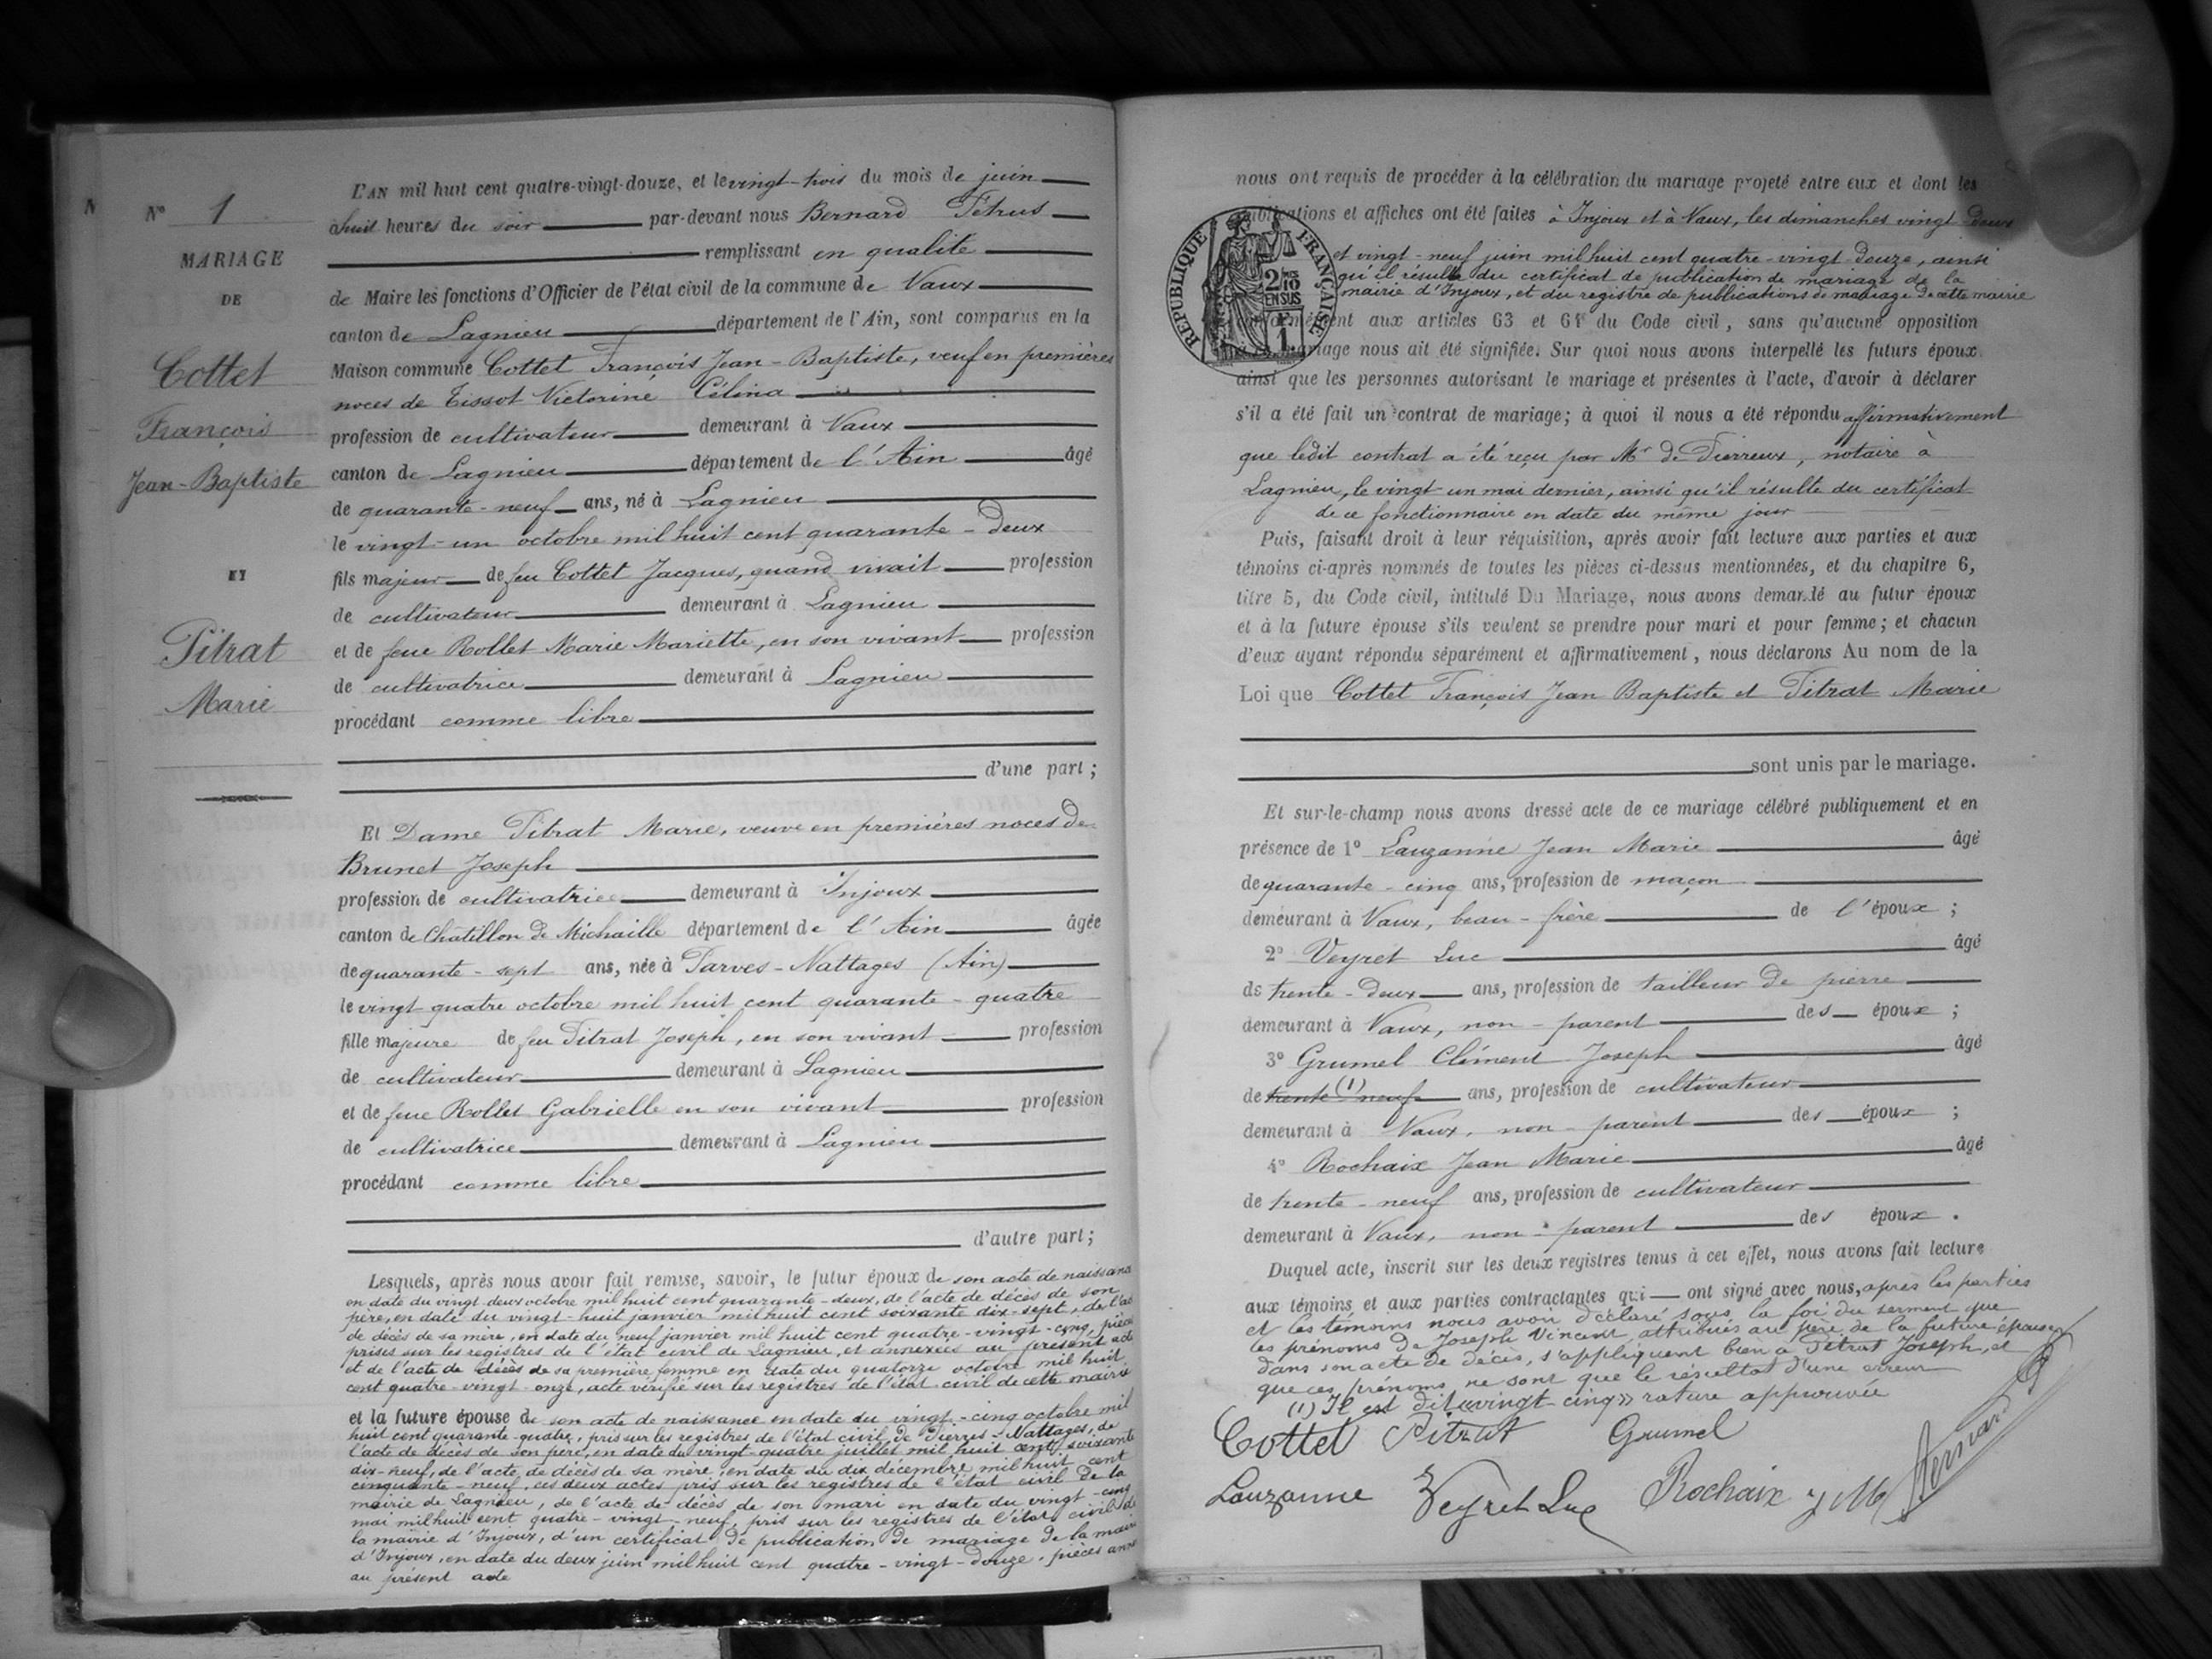 N
N° 1
MARIAGE
DE
Cottet
François
Jean-Baptiste
ET
Pitrat
Marie
L'AN mil huit cent quatre-vingt-douze, et le vingt-trois du mois de juin
à huit heures du soir par-devant nous Bernard Pétrus
remplissant en qualité
de Maire les fonctions d'Officier de l'état civil de la commune de Vaux
canton de Lagnieu département de l'Ain, sont comparus en la
Maison commune Cottet François Jean-Baptiste, veuf en premières
noces de Tissot Victorine Célina
profession de cultivateur demeurant à Vaux
canton de Lagnieu département de l'Ain âgé
de quarante-neuf ans, né à Lagnieu
le vingt-un octobre mil huit cent quarante-deux
fils majeur de feu Cottet Jacques, quand vivait profession
de cultivateur demeurant à Lagnieu
et de feue Rollet Marie Mariette, en son vivant profession
de cultivatrice demeurant à Lagnieu
procédant comme libre
d'une part;
Et Dame Pitrat Marie, veuve en premières noces de
Brunet Joseph
profession de cultivatrice demeurant à Injoux
canton de Châtillon de Michaille département de l'Ain âgée
de quarante-sept ans, née à Parves-Nattages (Ain)
le vingt quatre octobre mil huit cent quarante-quatre
fille majeure de feu Pitrat Joseph, en son vivant profession
de cultivateur demeurant à Lagnieu
et de feue Rollet Gabrielle en son vivant profession
de cultivatrice demeurant à Lagnieu
procédant comme libre
d'autre part;
Lesquels, après nous avoir fait remise, savoir, le futur époux de son acte de naissance
en date du vingt-deux octobre mil huit cent quarante-deux, de l'acte de décès de son
père, en date du vingt-huit janvier mil huit cent soixante dix-sept, de l'acte
de décès de sa mère, en date du neuf janvier mil huit cent quatre-vingt-cinq, pièces
prises sur les registres de l'état civil de Lagnieu, et annexées au présent acte
et de l'acte de décès de sa première femme en date du quatorze octobre mil huit
cent quatre-vingt-onze, acte vérifié sur les registres de l'état civil de cette mairie
et la future épouse de son acte de naissance en date du vingt-cinq octobre mil
huit cent quarante-quatre, pris sur les registres de l'état civil de Nattages, de
l'acte de décès de son père, en date du vingt-quatre juillet mil huit cent soixante
dix-neuf, de l'acte de décès de sa mère, en date du dix décembre mil huit cent
cinquante-neuf, ces deux actes pris sur les registres de l'état civil de la
mairie de Lagnieu, de l'acte de décès de son mari en date du vingt-cinq
mai mil huit cent quatre-vingt-neuf, pris sur les registres de l'état civil de
la mairie d'Injoux, d'un certificat de publication de mariage de la mairie
d'Injoux, en date du deux juin mil huit cent quatre-vingt-douze, pièces
au présent acte
nous ont requis de procéder à la célébration du mariage projeté entre eux et dont les
publications et affiches ont été faites à Injoux et à Vaux, les dimanches vingt-deux
et vingt-neuf juin mil huit cent quatre-vingt-douze, ainsi
qu'il résulte du certificat de publication de mariage de la
mairie d'Injoux, et du registre de publications de mariage de cette mairie
RÉPUBLIQUE FRANÇAISE
2/10
EN SUS
1
conformément aux articles 63 et 64 du Code civil, sans qu'aucune opposition
mariage nous ait été signifiée. Sur quoi nous avons interpellé les futurs époux
ainsi que les personnes autorisant le mariage et présentes à l'acte, d'avoir à déclarer
s'il a été fait un contrat de mariage; à quoi il nous a été répondu affirmativement
que ledit contrat a été reçu par Mr de Pierreux, notaire à
Lagnieu, le vingt-un mai dernier, ainsi qu'il résulte du certificat
de ce fonctionnaire en date du même jour
Puis, faisant droit à leur réquisition, après avoir fait lecture aux parties et aux
témoins ci-après nommés de toutes les pièces ci-dessus mentionnées, et du chapitre 6,
titre 5, du Code civil, intitulé Du Mariage, nous avons demandé au futur époux
et à la future épouse s'ils veulent se prendre pour mari et pour femme; et chacun
d'eux ayant répondu séparément et affirmativement, nous déclarons Au nom de la
Loi que Cottet François Jean Baptiste et Pitrat Marie
sont unis par le mariage.
Et sur-le-champ nous avons dressé acte de ce mariage célébré publiquement et en
présence de 1° Lauzanne Jean Marie âgé
de quarante-cinq ans, profession de maçon
demeurant à Vaux, beau-frère de l'époux;
2° Veyret Luc âgé
de trente-deux ans, profession de tailleur de pierre
demeurant à Vaux, non-parent des époux;
3° Grumel Clément Joseph âgé
de trente (1) neuf ans, profession de cultivateur
demeurant à Vaux, non-parent des époux;
4° Rochaix Jean Marie âgé
de trente-neuf ans, profession de cultivateur
demeurant à Vaux, non-parent des époux.
Duquel acte, inscrit sur les deux registres tenus à cet effet, nous avons fait lecture
aux témoins et aux parties contractantes qui ont signé avec nous, après les parties
et les témoins nous avoir déclaré sous la foi du serment que
les prénoms de Joseph Vincent attribués au père de la future épouse
dans son acte de décès, s'appliquent bien à Pitrat Joseph, et
que ces prénoms ne sont que le résultat d'une erreur
(1) Il est dit «vingt cinq» rature approuvée
Cottet Pitrat Grumel
Lauzanne Veyret Luc Rochaix J M Bernard